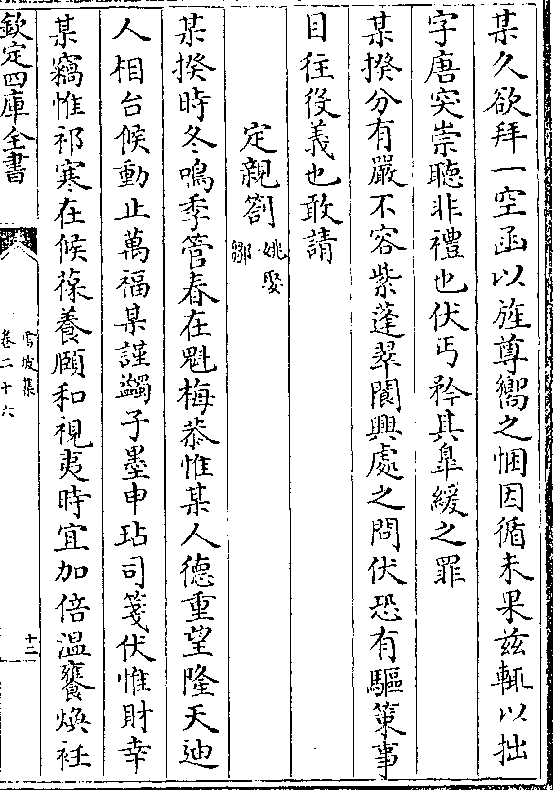 某久欲拜一空函以旌尊嚮之悃因循未果兹輒以拙
字唐突崇聽非禮也伏丐矜其辠緩之罪
某揆分有嚴不容紫蓬翠闤興處之問伏恐有驅策事
目往役義也敢請
定親劄姚娶鄒
某揆時冬鳴季管春在魁梅恭惟某人德重望隆天迪
人相台候動止萬福某謹蠲子墨申玷司箋伏惟財幸
某竊惟祁寒在候葆養頤和視夷時宜加倍溫饔燠衽
欽定四庫全書
雪坡集
卷二十六
十二